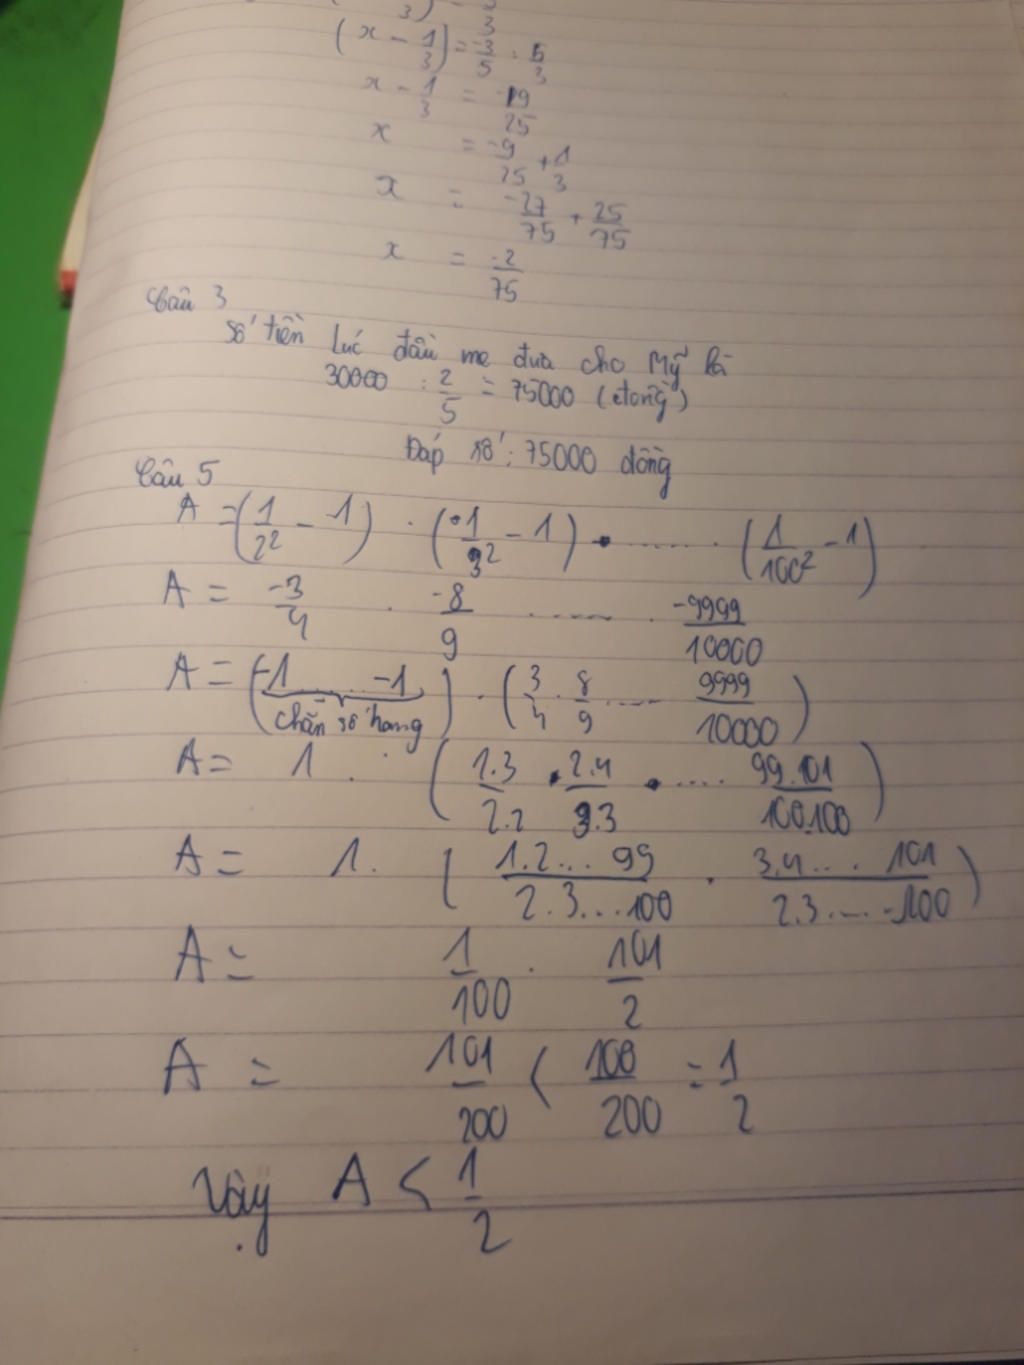 (x - 1/3) = -3/5 . 5/3
x - 1/3 = -9/25
x = -9/25 + 1/3
x = -27/75 + 25/75
x = -2/75
Câu 3
Số tiền lúc đầu mẹ đưa cho Mỹ là
30000 : 2/5 = 75000 (đồng)
Đáp số: 75000 đồng
Câu 5
A = (1/2² - 1) . (1/3² - 1) . ...... . (1/100² - 1)
A = -3/4 . -8/9 ...... . -9999/10000
A = (-1 ... -1) . (3/4 . 8/9 .... 9999/10000)
chẵn số hạng
A = 1 . (1.3/2.2 . 2.4/3.3 . .... 99.101/100.100)
A = 1. (1.2...99/2.3...100 . 3.4....101/2.3....100)
A = 1/100 . 101/2
A = 101/200 < 100/200 = 1/2
Vậy A < 1/2